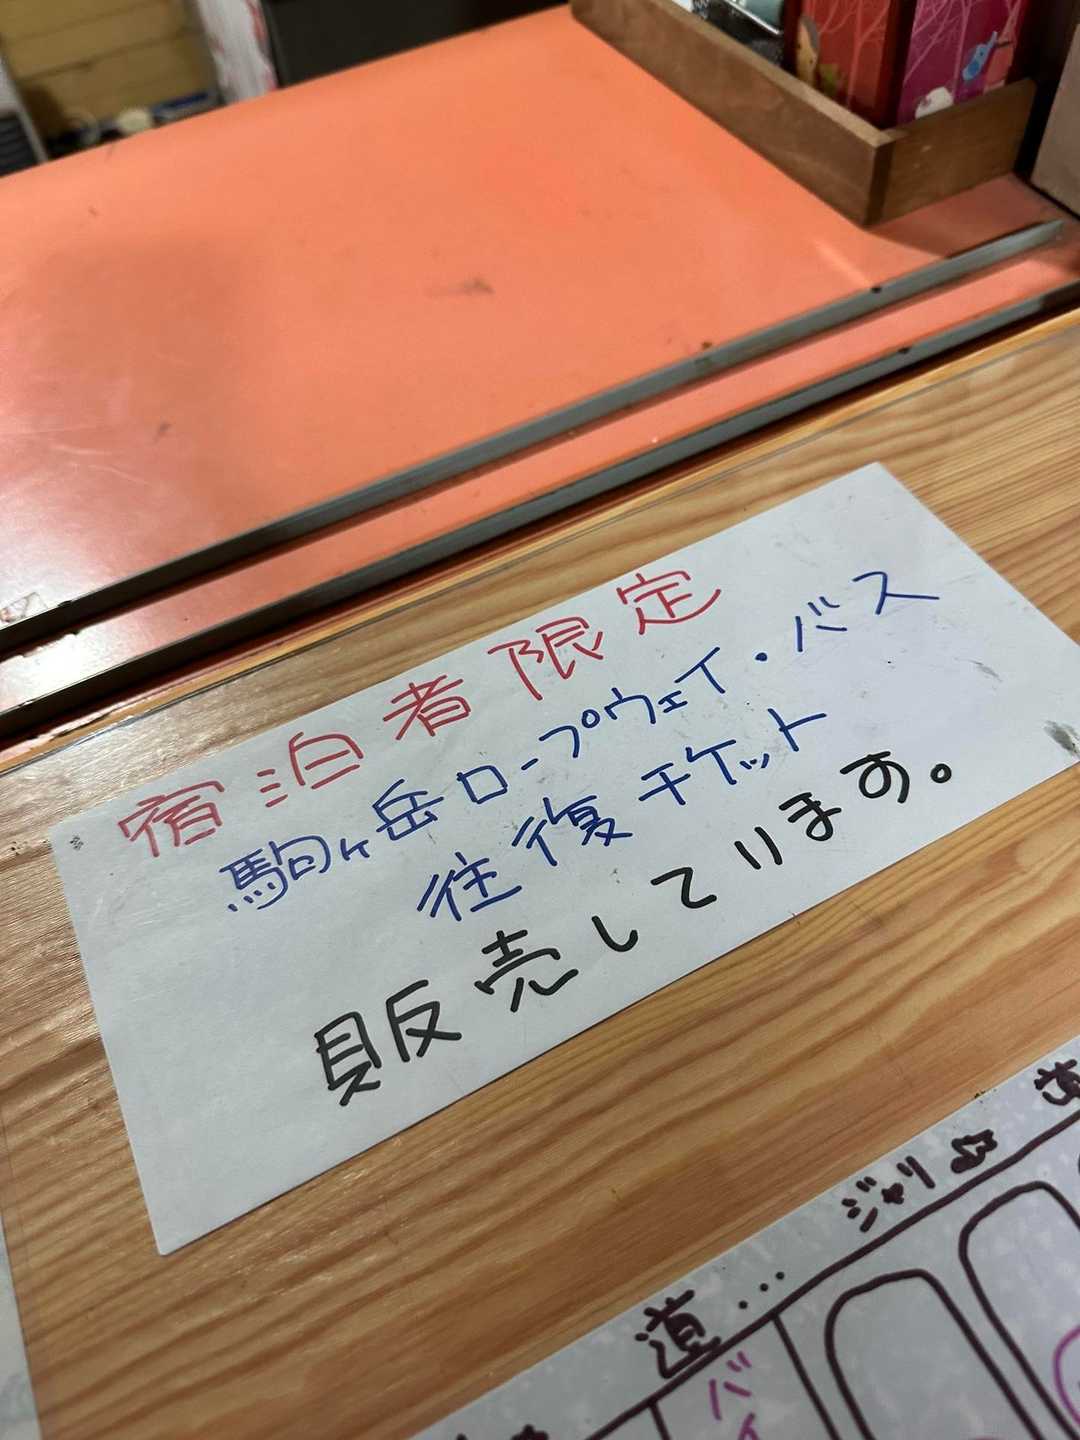 宿泊者限定
駒ヶ岳ロープウェイ・バス
往復チケット
販売しています。
ジャリ
道...
バイ